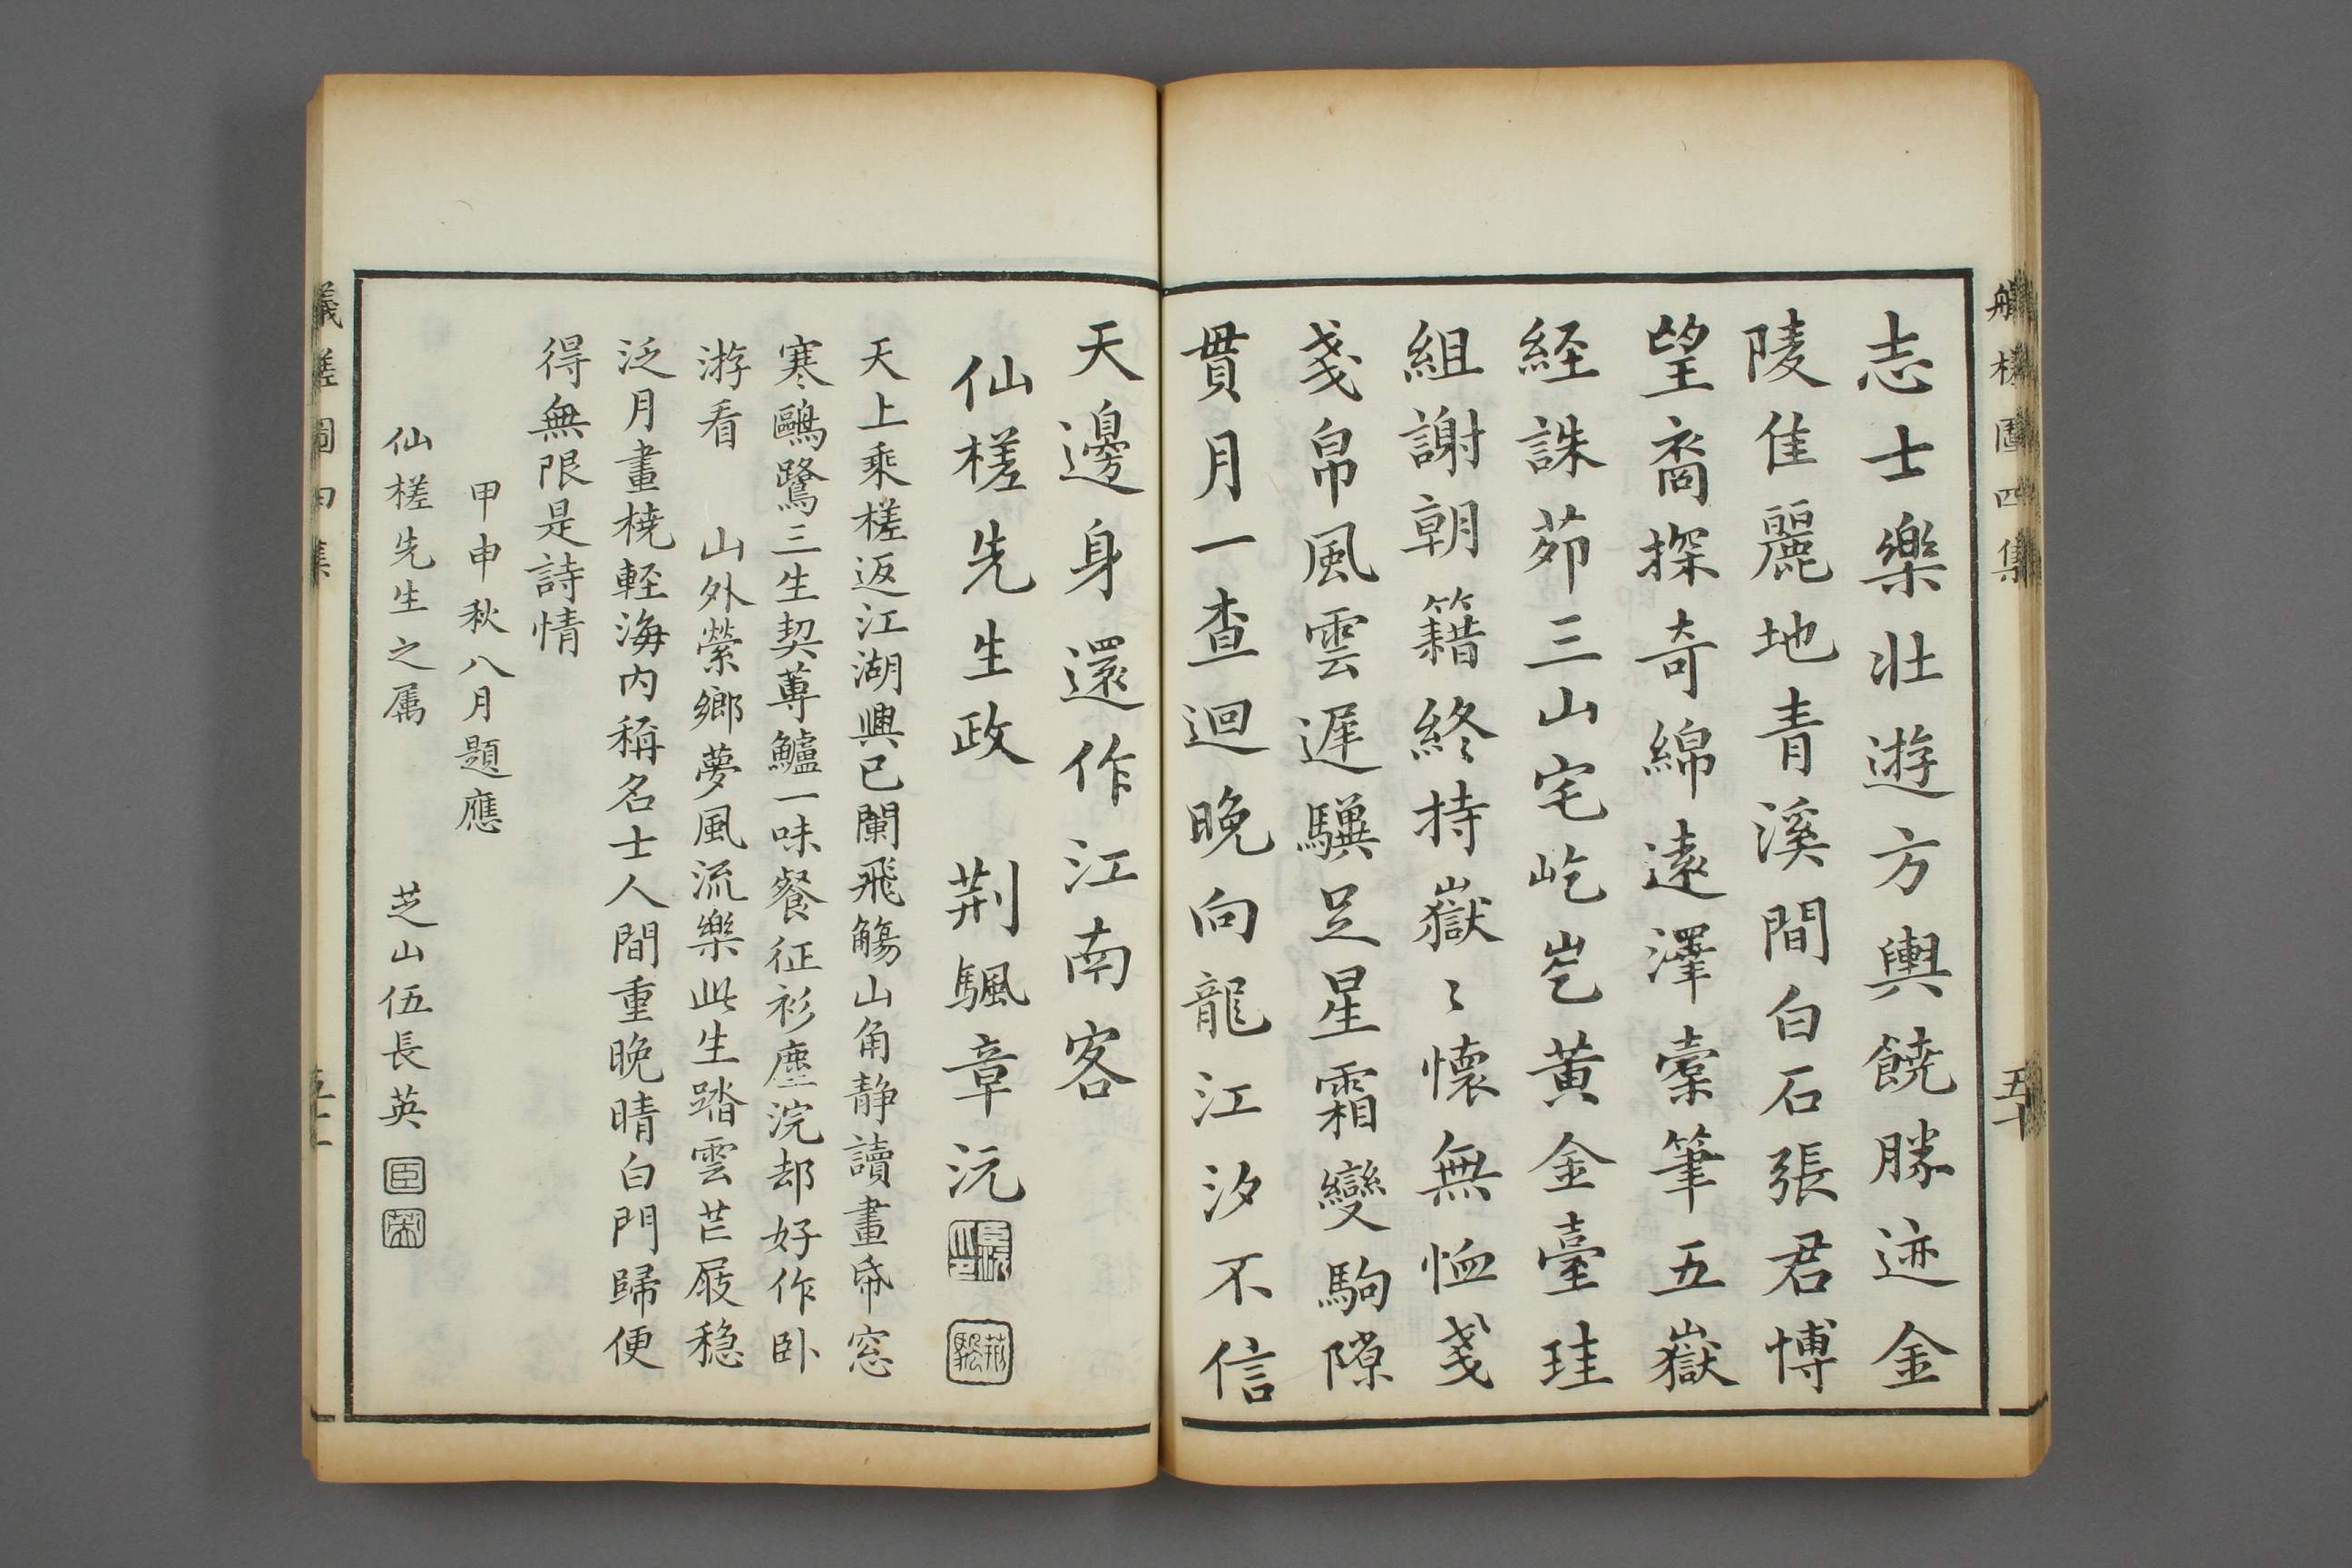 志士樂壯遊方輿饒勝迹金
陵佳麗地青溪間白石張君博
望裔探奇綿遠澤橐筆五嶽
経誅茆三山宅屹屹黄金臺珪
組謝朝籍終持嶽〻懷無恤戔
戔帛風雲遲驥足星霜變駒隙
貫月一查迴晚向龍江汐不信
天邊身還作江南客
仙槎先生政 荆颿章沅
天上乘槎返江湖興已闌飛觴山角静讀畫帋窓
寒鷗鷺三生契蓴鱸一味餐征衫塵浣却好作卧
游看 山外縈鄉夢風流樂此生踏雲芒屐穏
泛月畫橈輕海内稱名士人間重晚晴白門歸便
得無限是詩情
甲申秋八月題應
仙槎先生之属 芝山伍長英
槎圖四集
五十
槎圖四集